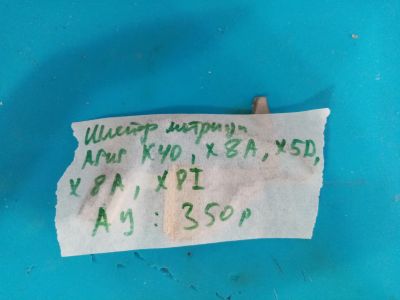 Шлейф матрицы
Asus K40, X8A, X5D,
X8A, X8I
Ay: 350р